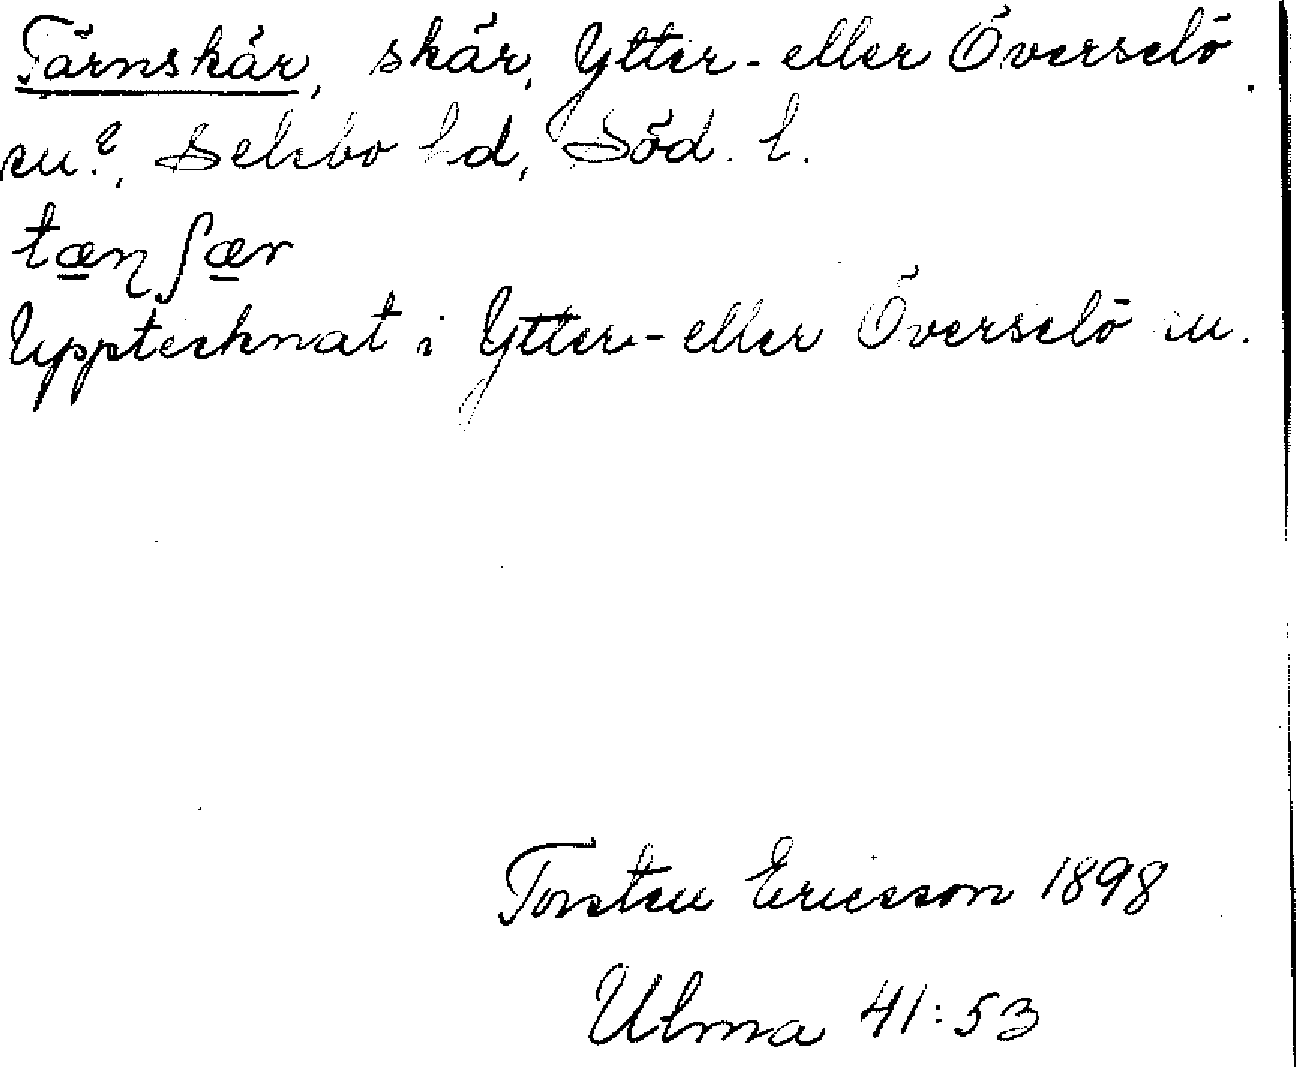 Tärnskär, skär, Ytter- eller Överselö
su?, Selebo hd, Söd. l.
tæɳʃær
Upptecknat i Ytter- eller Överselö su.
Torsten Ericsson 1898
Ulma 41:53